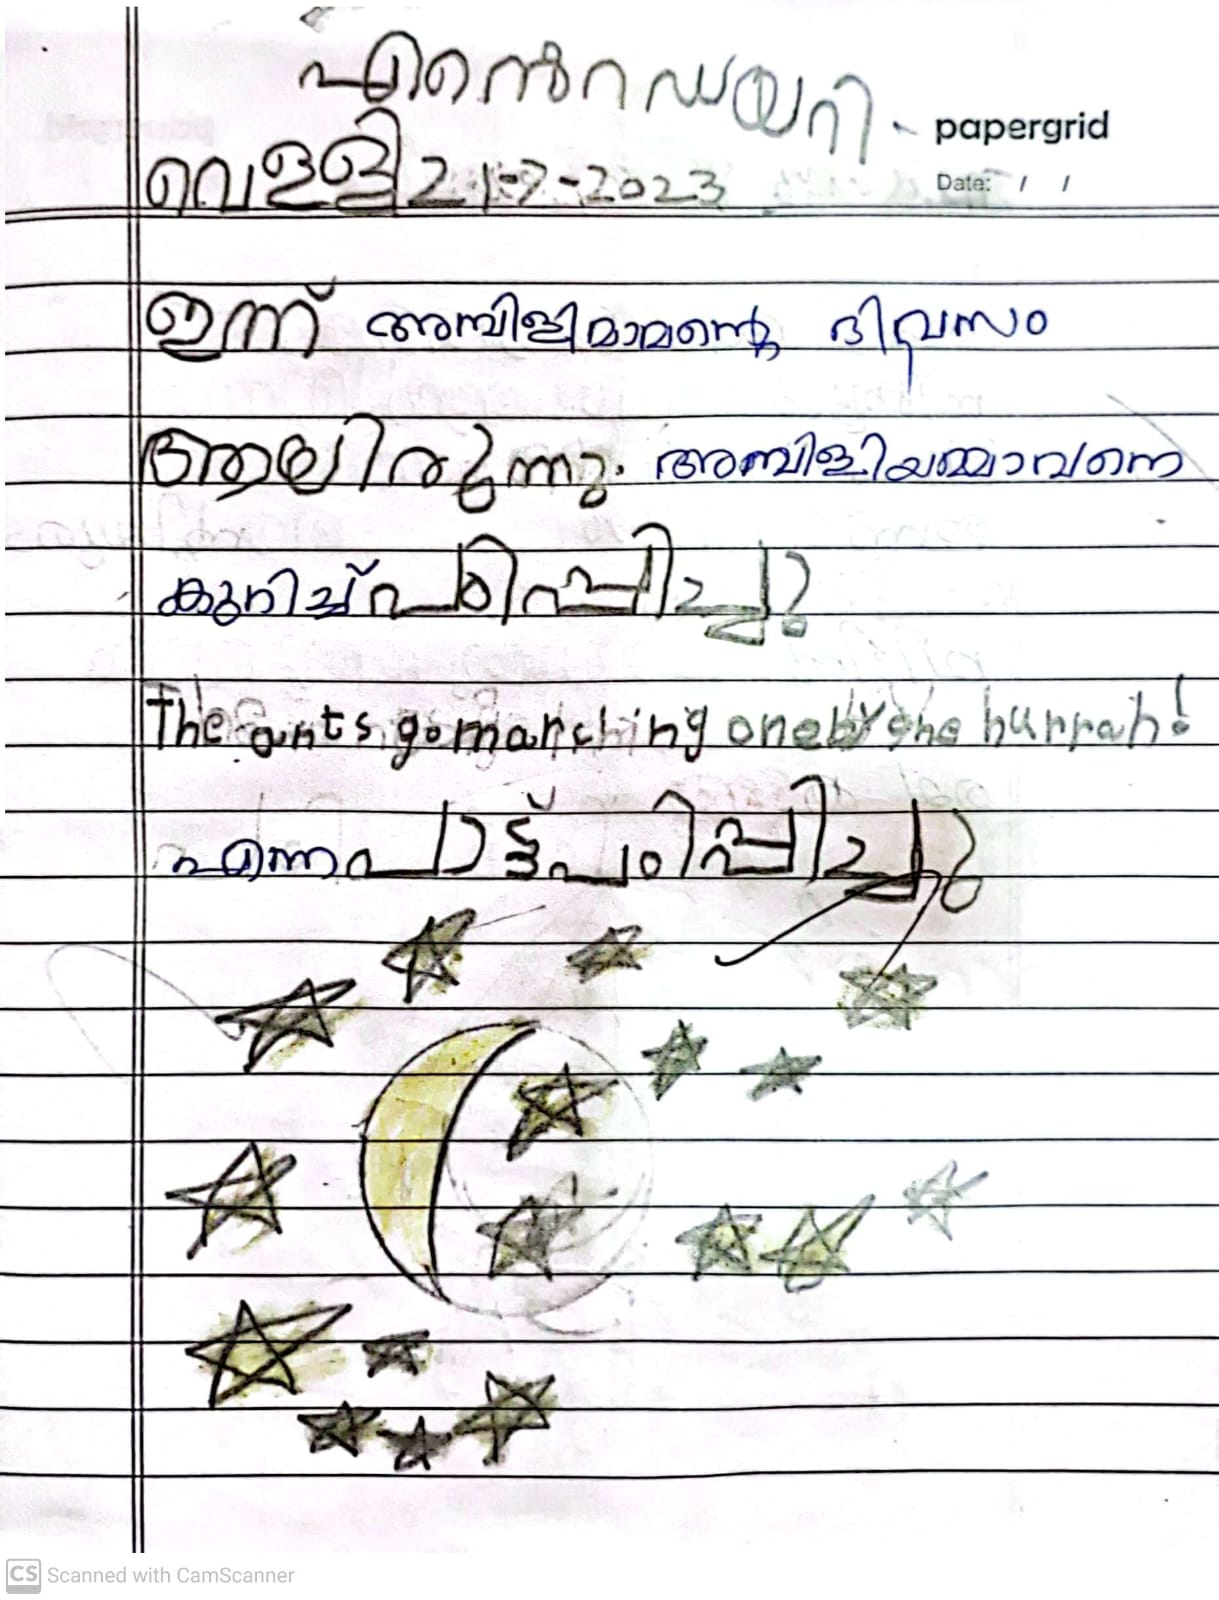 എൻെറ ഡയറി
papergrid
വെള്ളി 21-7-2023
Date: / /
ഇന്ന് അമ്പിളിമാമന്റെ ദിവസം
ആയിരുന്നു. അമ്പിളിയമ്മാവനെ
കുറിച്ച് പഠിപ്പിച്ചു
The ants go marching one by one hurrah!
എന്ന പാട്ട് പഠിപ്പിച്ചു
CS Scanned with CamScanner